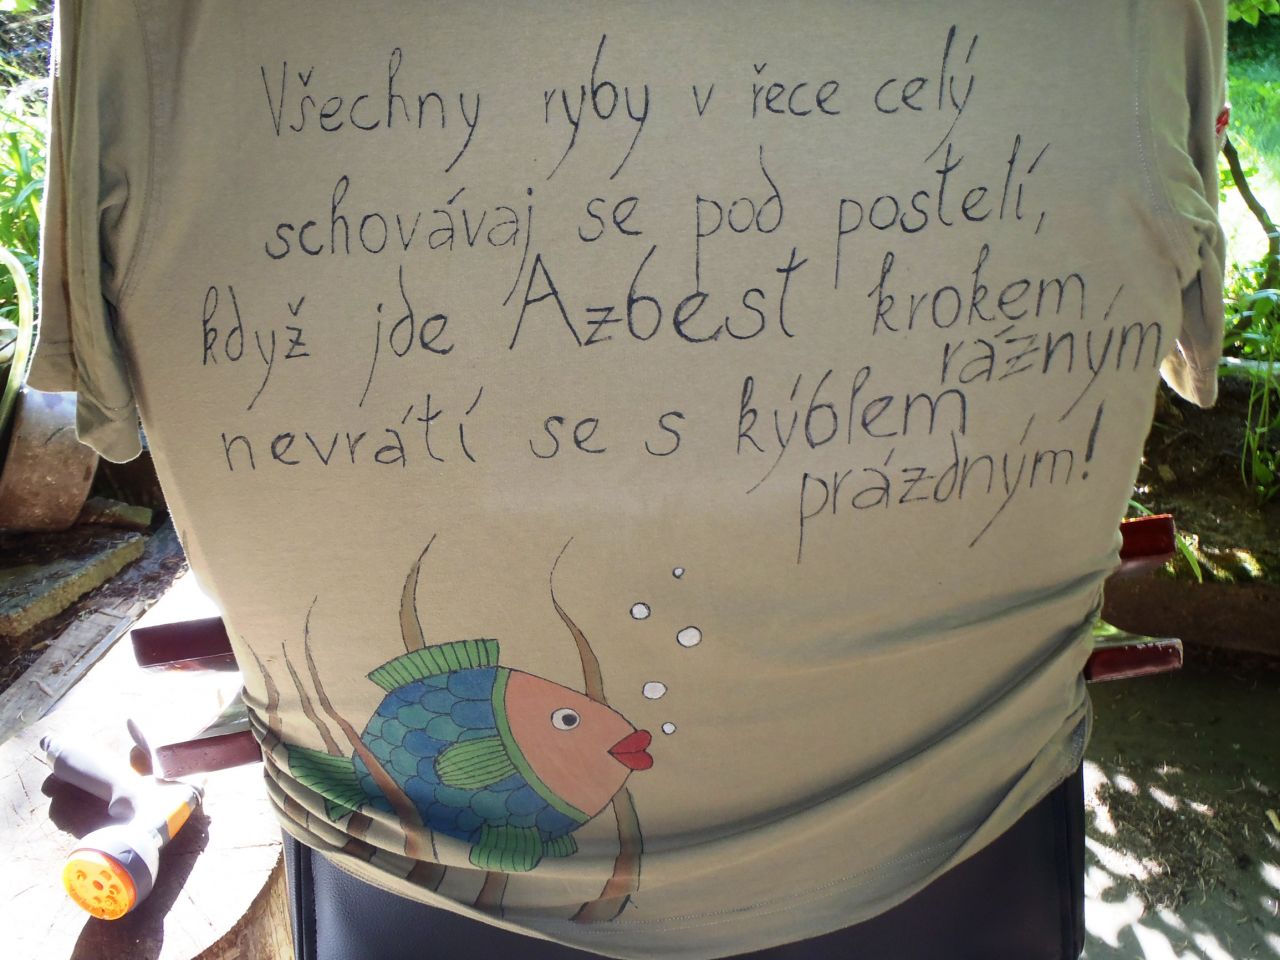 Všechny ryby v řece celý
schovávaj se pod postelí,
když jde Azbest krokem
rázným
nevrátí se s kýblem
prázdným!